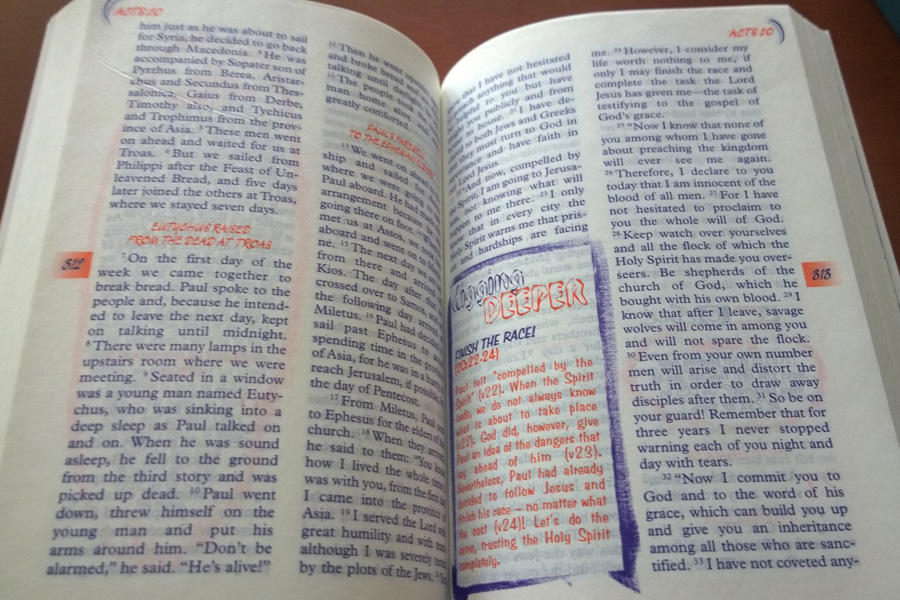 ACTS 20
him just as he was about to sail
for Syria, he decided to go back
through Macedonia. ⁴He was
accompanied by Sopater son of
Pyrrhus from Berea, Aristar-
chus and Secundus from Thes-
salonica, Gaius from Derbe,
Timothy also, and Tychicus
and Trophimus from the prov-
ince of Asia. ⁵These men went
on ahead and waited for us at
Troas. ⁶But we sailed from
Philippi after the Feast of Un-
leavened Bread, and five days
later joined the others at Troas,
where we stayed seven days.
EUTYCHUS RAISED
FROM THE DEAD AT TROAS
⁷On the first day of the
week we came together to
break bread. Paul spoke to the
people and, because he intend-
ed to leave the next day, kept
on talking until midnight.
⁸There were many lamps in the
upstairs room where we were
meeting. ⁹Seated in a window
was a young man named Euty-
chus, who was sinking into a
deep sleep as Paul talked on
and on. When he was sound
asleep, he fell to the ground
from the third story and was
picked up dead. ¹⁰Paul went
down, threw himself on the
young man and put his
arms around him. "Don't be
alarmed," he said. "He's alive!"
312
¹¹Then he went
and broke bread
talking until
¹²The people
man home alive
greatly comforted.
PAUL'S
TO THE EPHESIAN
¹³We went on ahead
ship and sailed for
where we were going
Paul aboard. He had
arrangement because
going there on foot.
met us at Assos, we
aboard and went on to
ne. ¹⁵The next day we
from there and arrived
Kios. The day after that
crossed over to Samos, and
the following day arrived
Miletus. ¹⁶Paul had decided
sail past Ephesus to
spending time in the province
of Asia, for he was in a hurry
reach Jerusalem, if possible,
the day of Pentecost.
¹⁷From Miletus, Paul sent
to Ephesus for the elders of the
church. ¹⁸When they arrived,
he said to them: "You know
how I lived the whole time
was with you, from the first day
I came into the province
Asia. ¹⁹I served the Lord with
great humility and with tears,
although I was severely tested
by the plots of the Jews.
ACTS 20
that I have not hesitated
anything that would
helpful to you but have
you publicly and from
to house. ²¹I have de-
to both Jews and Greeks
they must turn to God in
and have faith in
Lord Jesus.
"And now, compelled by
Spirit, I am going to Jerusa-
not knowing what will
happen to me there. ²³I only
that in every city the
Holy Spirit warns me that pris-
and hardships are facing
Digging
DEEPER
FINISH THE RACE!
(20:22-24)
Paul felt "compelled by the
Spirit" (v22). When the Spirit
leads, we do not always know
what is about to take place
(v22). God did, however, give
Paul an idea of the dangers that
lay ahead of him (v23).
Nevertheless, Paul had already
decided to follow Jesus and
finish his race – no matter what
the cost (v24)! Let's do the
same, trusting the Holy Spirit
completely.
me. ²⁴However, I consider my
life worth nothing to me, if
only I may finish the race and
complete the task the Lord
Jesus has given me—the task of
testifying to the gospel of
God's grace.
²⁵"Now I know that none of
you among whom I have gone
about preaching the kingdom
will ever see me again.
²⁶Therefore, I declare to you
today that I am innocent of the
blood of all men. ²⁷For I have
not hesitated to proclaim to
you the whole will of God.
²⁸Keep watch over yourselves
and all the flock of which the
Holy Spirit has made you over-
seers. Be shepherds of the
church of God, which he
bought with his own blood. ²⁹I
know that after I leave, savage
wolves will come in among you
and will not spare the flock.
³⁰Even from your own number
men will arise and distort the
truth in order to draw away
disciples after them. ³¹So be on
your guard! Remember that for
three years I never stopped
warning each of you night and
day with tears.
³²"Now I commit you to
God and to the word of his
grace, which can build you up
and give you an inheritance
among all those who are sanc-
tified. ³³I have not coveted any-
313